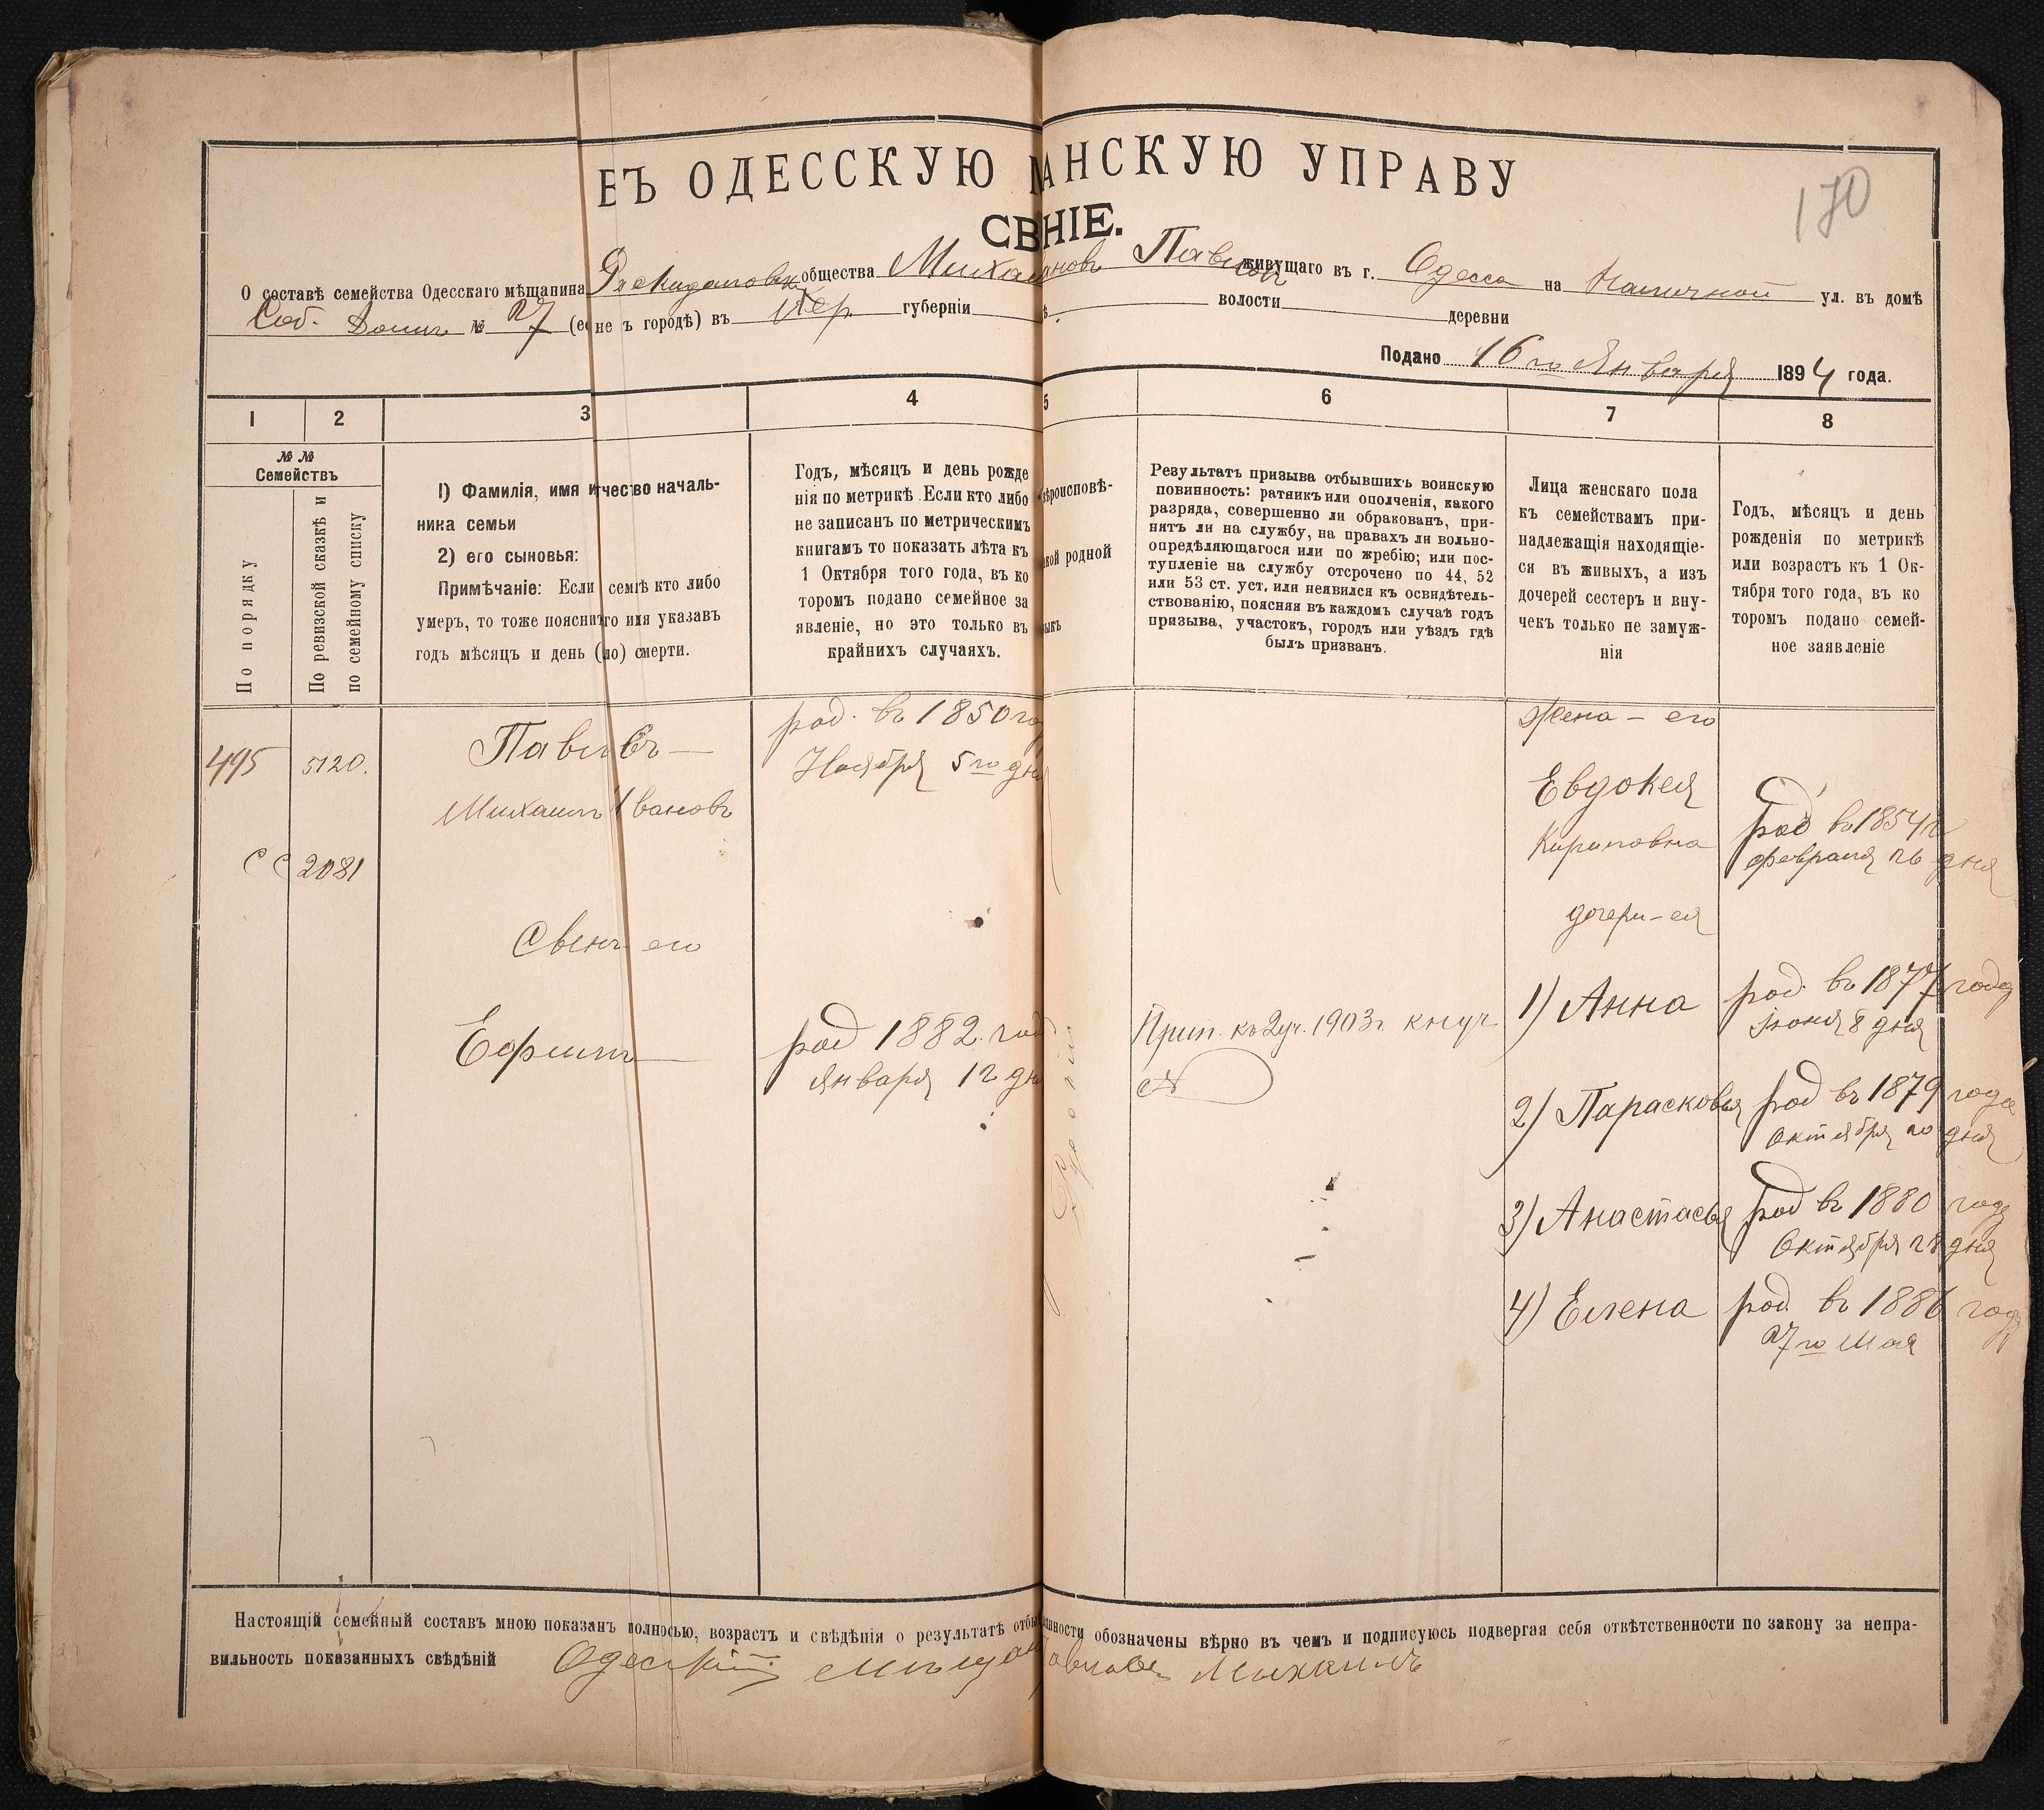 170
ВЪ ОДЕССКУЮ АНСКУЮ УПРАВУ
СВНІЕ.
О составѣ семейства Одесскаго мѣщанина общества Михаила Ивановъ Павловъ живущаго въ г. Одесса на ул. въ домѣ
Соб. Домъ № 27 (ес не ъ городѣ) въ Хер. губерніи волости деревни
Подано 16го Января 1894 года.
1 2 3 4 5 6 7 8
№ №
Семействъ
По порядку
По ревизской сказкѣ и
по семейному списку
1) Фамилія, имя и чество началь-
ника семьи
2) его сыновья:
Примѣчаніе: Если семіѣ кто либо
умеръ, то тоже пояснит го имя указавъ
годъ мѣсяцъ и день (по) смерти.
Годъ, мѣсяцъ и день рожде
нія по метрикѣ. Если кто либо
не записанъ по метрическимъ
книгамъ то показать лѣта къ
1 Октября того года, въ ко
торомъ подано семейное за
явленіе, но это только въ
крайнихъ случаяхъ.
ѣроисповѣ-
кой родной
зыкъ
Результатъ призыва отбывшихъ воинскую
повинность: ратникъ или ополченія, какого
разряда, совершенно ли обракованъ, при-
нятъ ли на службу, на правахъ ли вольно-
опредѣляющагося или по жребію; или пос-
тупленіе на службу отсрочено по 44, 52
или 53 ст. уст. или неявился къ освидѣтель-
ствованію, поясняя въ каждомъ случаѣ годъ
призыва, участокъ, городъ или уѣздъ гдѣ
былъ призванъ.
Лица женскаго пола
къ семействамъ при-
надлежащія находящіе-
ся въ живыхъ, а изъ
дочерей сестеръ и вну-
чекъ только не замуж-
нія
Годъ, мѣсяцъ и день
рожденія по метрикѣ
или возрастъ къ 1 Ок-
тября того года, въ ко
торомъ подано семей-
ное заявленіе
495 5120.
Павловъ
Михаилъ Ивановъ
род. въ 1850 го
Ноября 5го дня
С С 2081
Сынъ его
Ефимъ
род 1882 год
января 12 дн
Прип. къ 2 уч. 1903 г.
жена - его
Евдокея
Кириловна
род въ 1854 г
февраля 26 дня
дочери - ея
1) Анна
род. въ 1877 года
Іюня 8 дня
2) Парасковья
род въ 1879 года
Октября 20 дня
3) Анастасья
род въ 1880 года
Октября 28 дня
4) Елена
род. въ 1886 год
27го Мая
Настоящій семейный составъ мною показанъ полносью, возрастъ и свѣдѣнія о результатѣ отбы нности обозначены вѣрно въ чемъ и подписуюсь подвергая себя отвѣтственности по закону за непра-
вильность показанныхъ свѣдѣній Одесскій Мещан Павловъ Михаилъ